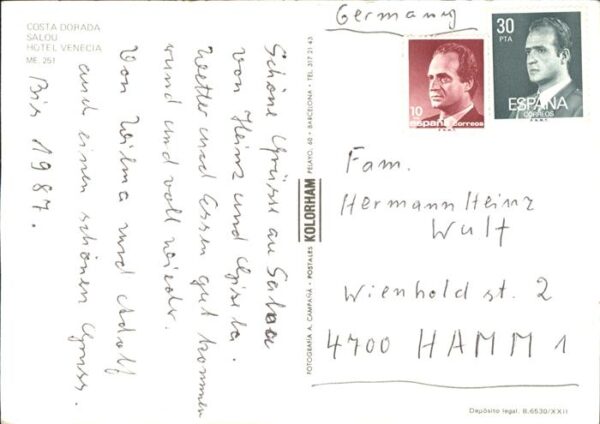 COSTA DORADA
SALOU
HOTEL VENECIA
ME 251
Schöne Grüsse au Salou
von Heinz und Gisela.
Wetter und Essen gut kommen
rund und voll wieder.
Von Wilma und Adolf
auch einen schönen Gruss.
Bis 1987.
FOTOGRAFIA A. CAMPAÑÁ - POSTALES KOLORHAM PELAYO, 60 - BARCELONA - TEL. 317 21 43
Germany
10
españa correos
30
PTA
ESPAÑA
CORREOS
Fam.
Hermann Heinz
Wulf
Wienhold st. 2
4700 HAMM 1
Depósito legal. B. 6530/XXII